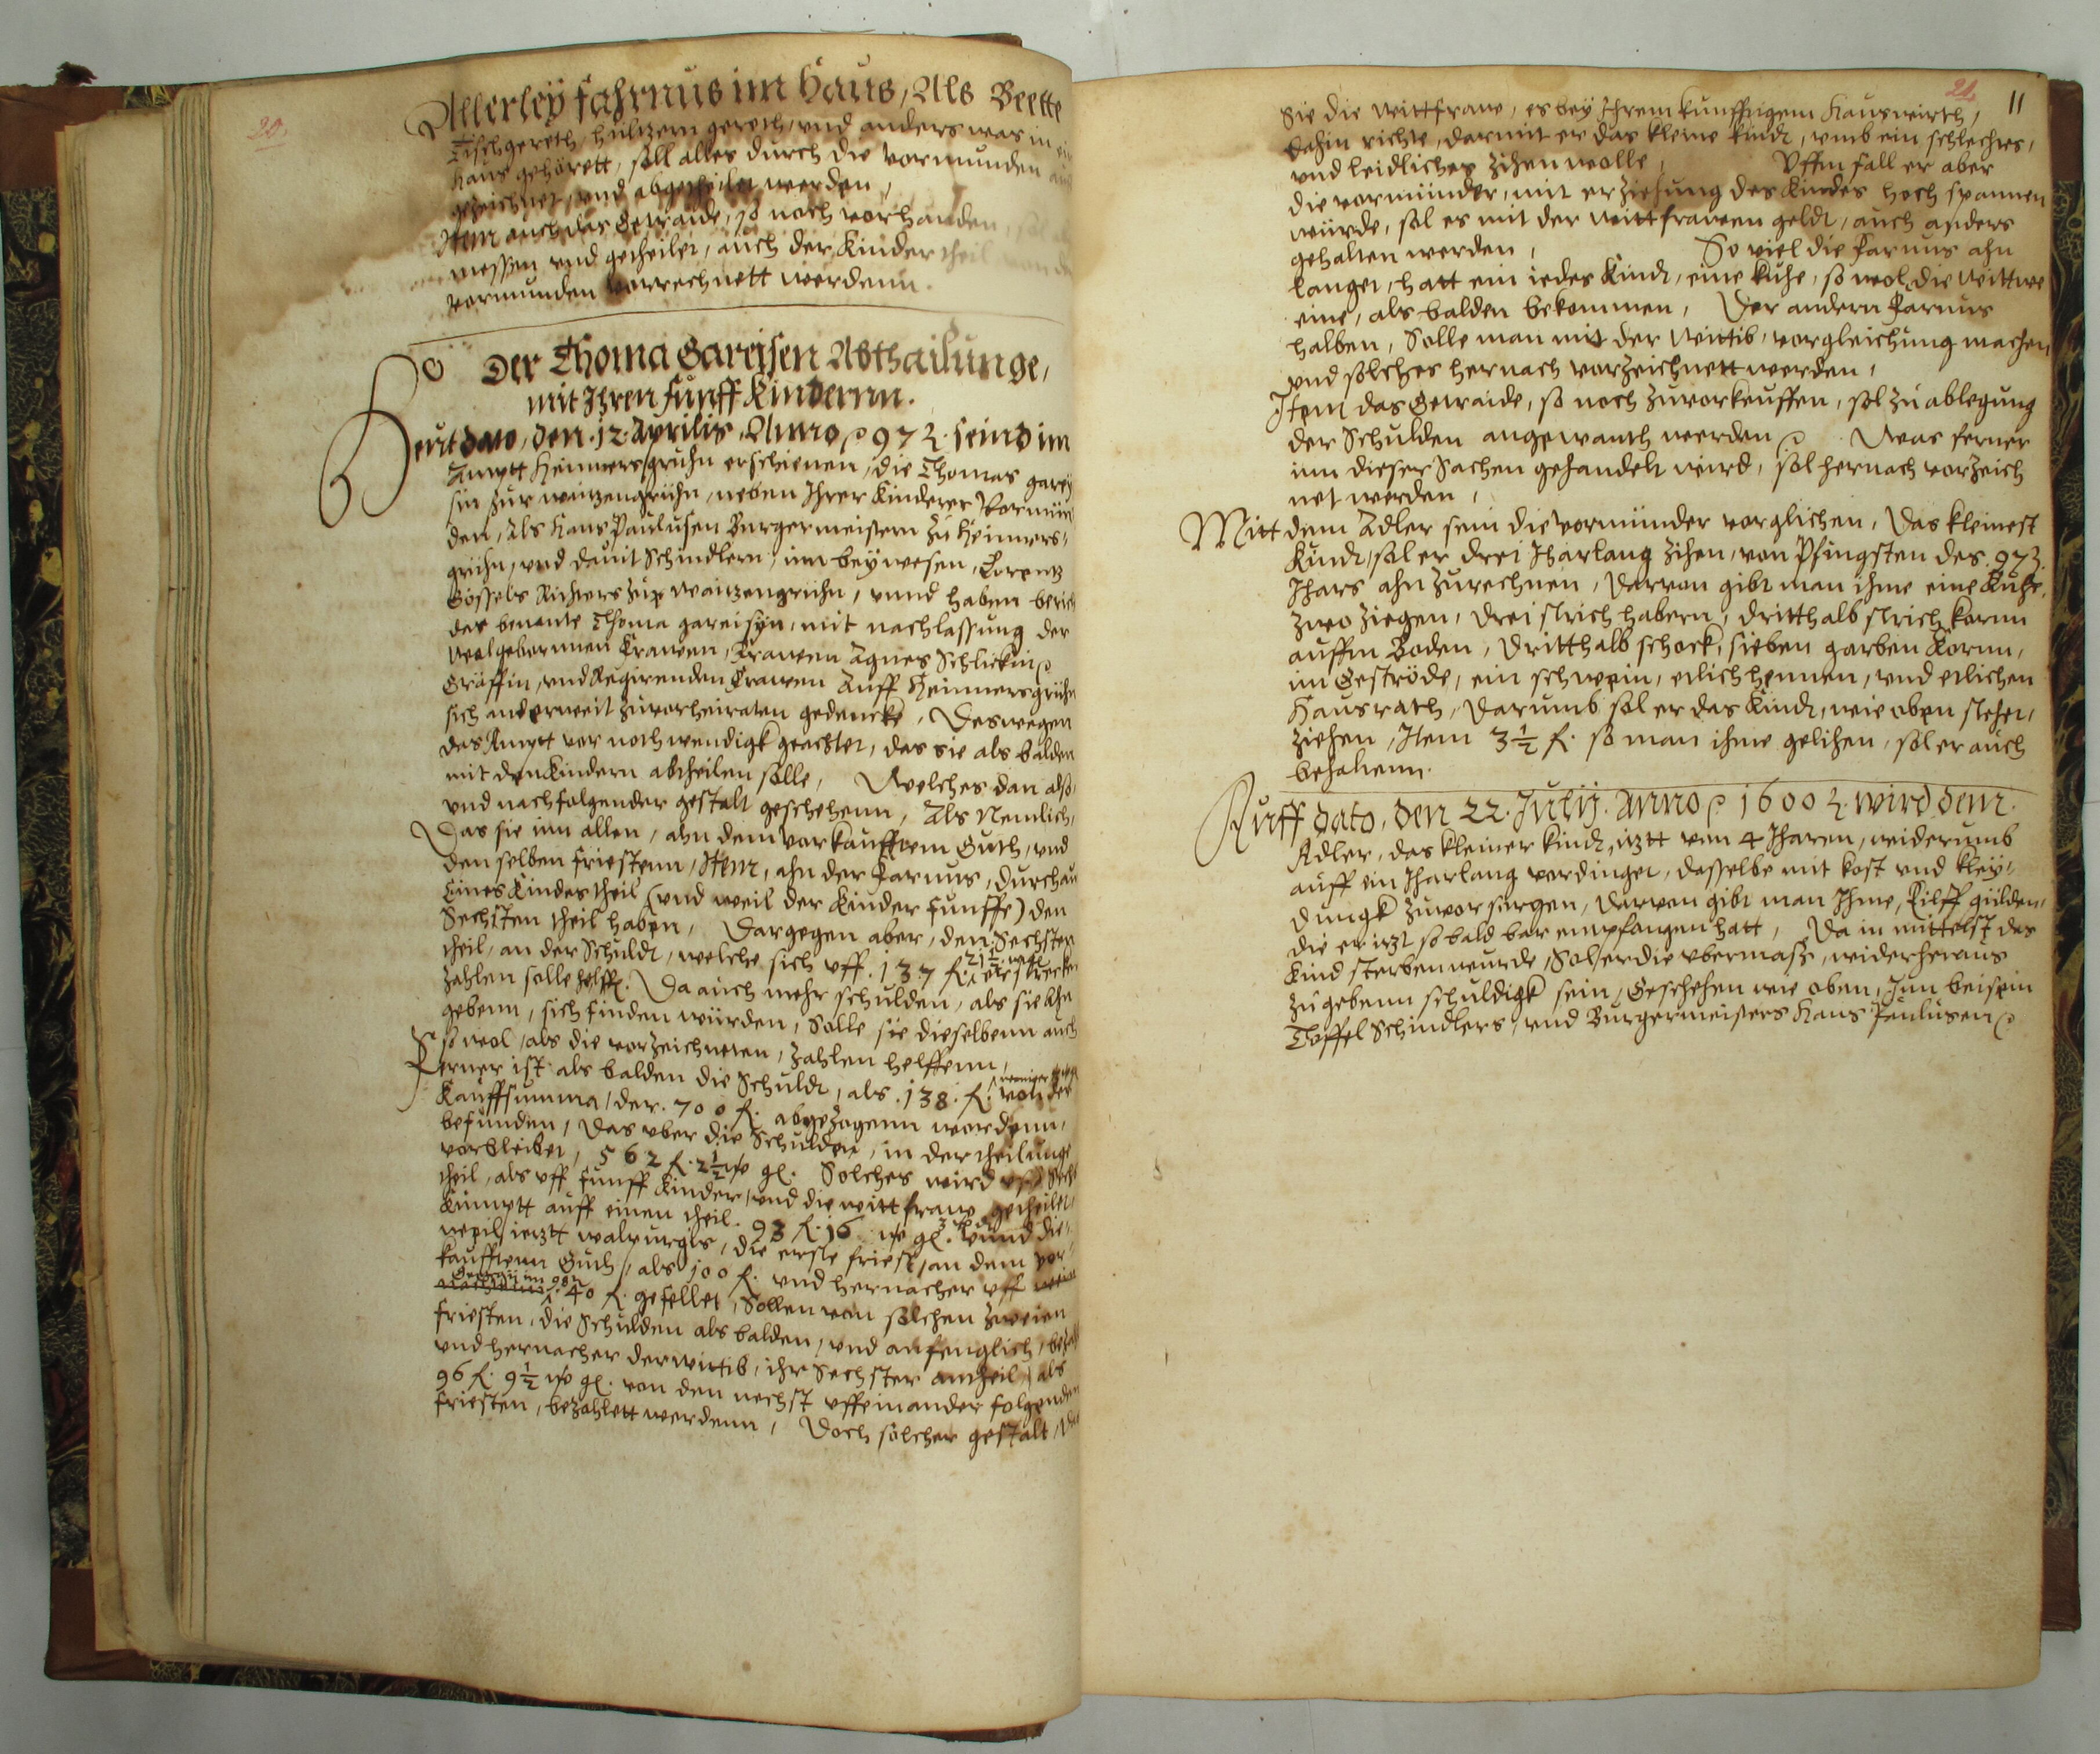 20.
Allerleÿ fahrnus im Haus, Als Bette
Tischgereth, hultzern gereth, vnd anders was in
Haus gehörett, soll alles durch die vormunden
gezeichnet, vnd abgetheilet werden,
Item auch das Getraide, so noch vorhanden,
messen vnd getheilet, auch der Kinder theil
vormunden vorrechnett werdenn.
Der Thoma Gareisen Abthailunge,
mit Ihren funff Kindernn.
Heut dato, den .12. Aprilis, Anno 97 seind im
Amptt Heinnersgruhn erschienen, die Thomas Garey
sin zur waitzengrühn, neben Ihrer Kinderer Vormün
den, Als Hans Paulusen Burgermeistern zu Heinners-
grühn, vnd Dauit Schindlern, inn beÿwesen, Lorentz
Gössels Richters zur Waitzengrühn, vnnd haben
das benante Thoma gareisÿn, mit nachlassung der
Wolgebornnen Frawen, Frawen Agnes Schlickin
Gräffin, vnd Regirenden Frawen Auff Heinnersgrühn
sich anderweit zuvorheiraten gedencke, Deswegen
das Amptt vor nothwendigk geachtet, das sie als balden
mit den Kindern abtheilen solle, Welches dan also,
vnd nachfolgender gestalt geschehenn, Als Nemlich,
Das sie inn allen, ahn dem vorkaufftem Guth, vnd
denselben friestenn, Item, ahn der Farnus, durchau
Eines Kindes theil (vnd weil der Kinder funffe) den
Sechsten theil haben, Dargegen aber, den Sechsten
theil, an der Schuldt, welche sich vff .137 fl. 21½
zahlen solle helffen. Da auch mehr schulden, als sie
gebenn, sich finden würden, Solle sie dieselbenn auch
so wol, als die vorzeichneten, zahlen helffenn,
Ferner ist als balden die Schuldt, als .138. fl. von der
Kauffsumma, der .700 fl. abgezogenn wordenn,
befunden, Das vber die Schulden, in der theilunge
vorbleibet, 562 fl. 2½ gl. Solches wird
theil, als vff funff Kinder, vnd die wittfraw getheilet,
Kümptt auff einen theil. 93 fl. 16 gl. 3 vnnd die-
weil ietzt walpurgis, die erste friest, an dem vor-
kaufftenn Guth, als 100 fl. vnd hernacher vff
40 fl. gefellet, Sollen von solchen zweien
friesten, die Schulden als balden, vnd anfenglich,
vnd hernacher der wittib, ihr Sechster antheil, als
96 fl. 9½ gl. von den nechst vffeinander folgenden
friesten, bezahlett werdenn, Doch solcher gestalt,
21 11
Sie die wittfraw, es beÿ Ihrem kunfftigem Hauswirth,
dahin richte, darmit er das kleine kindt, vmb ein schlechtes,
vnd leidliches zihen wolle, Vffm fall er aber
die vormünder, mit erziehung des Kindes hoch spannen
würde, sol es mit der wittfrawen geldt, auch anders
gehalten werden, So viel die Farnus ahn
langet, hatt ein iedes Kindt, eine Kuhe, so wol die Wittwe
eine, als balden bekommen, Der andern Farnus
halben, Solle man mit der Wittib, vorgleichung machen
vnd solches hernach vorzeichnett werden,
Item das Getraide, so noch zuvorkeuffen, sol zu ablegung
der Schulden angewanth werden Was ferner
inn dieser Sachen gehandelt wird, sol hernach vorzeich
net werden,
Mitt dem Adler sein die vormünder vorglichen, Das kleinest
Kindt, sol er drei Jharlang zihen, von Pfingsten des 97.
Jhars ahn zurechnen, Darvon gibt man ihme eine Kuhe,
zwo Ziegen, drei strich habern, dritthalb strich kornn
auffm Boden, Dritthalb schock, sieben garben Kornn,
im Geströde, ein schwein, etlich hennen, vnd etlichen
Hausrath, Darumb sol er das Kindt, wie oben stehet,
ziehen, Item 3½ fl. so man ihme gelihen, sol er auch
behaltenn.
Auff dato, den 22. Julij. Anno 1600 wird dem
Adler, das kleiner kindt, itzt von 4 Jharen, widerumb
auff ein Jharlang verdinget, dasselbe mit kost vnd kley-
dungk zuvorsorgen, Darvon gibt man Ihme, Eilff gulden,
die er itzt so bald bar empfangen hatt, Da in mittelst das
Kind sterben wurde, Sol er die vbermass, widerheraus
zugebenn schuldigk sein, Geschehen wie oben, Inn beisein
Toffel Schindlers, vnd Burgermeisters Hans Paulusen